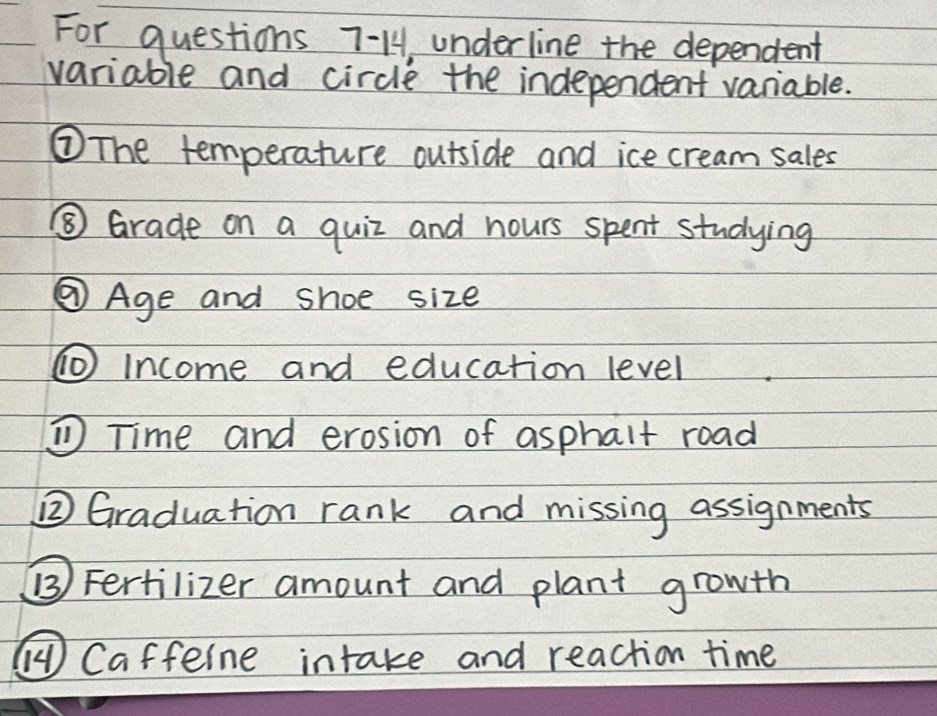 For questions 7-14, underline the dependent
variable and circle the independent variable.
⑦ The temperature outside and ice cream sales
⑧ Grade on a quiz and hours spent studying
⑨ Age and shoe size
⑩ Income and education level
⑪ Time and erosion of asphalt road
⑫ Graduation rank and missing assignments
⑬ Fertilizer amount and plant growth
⑭ Caffeine intake and reaction time